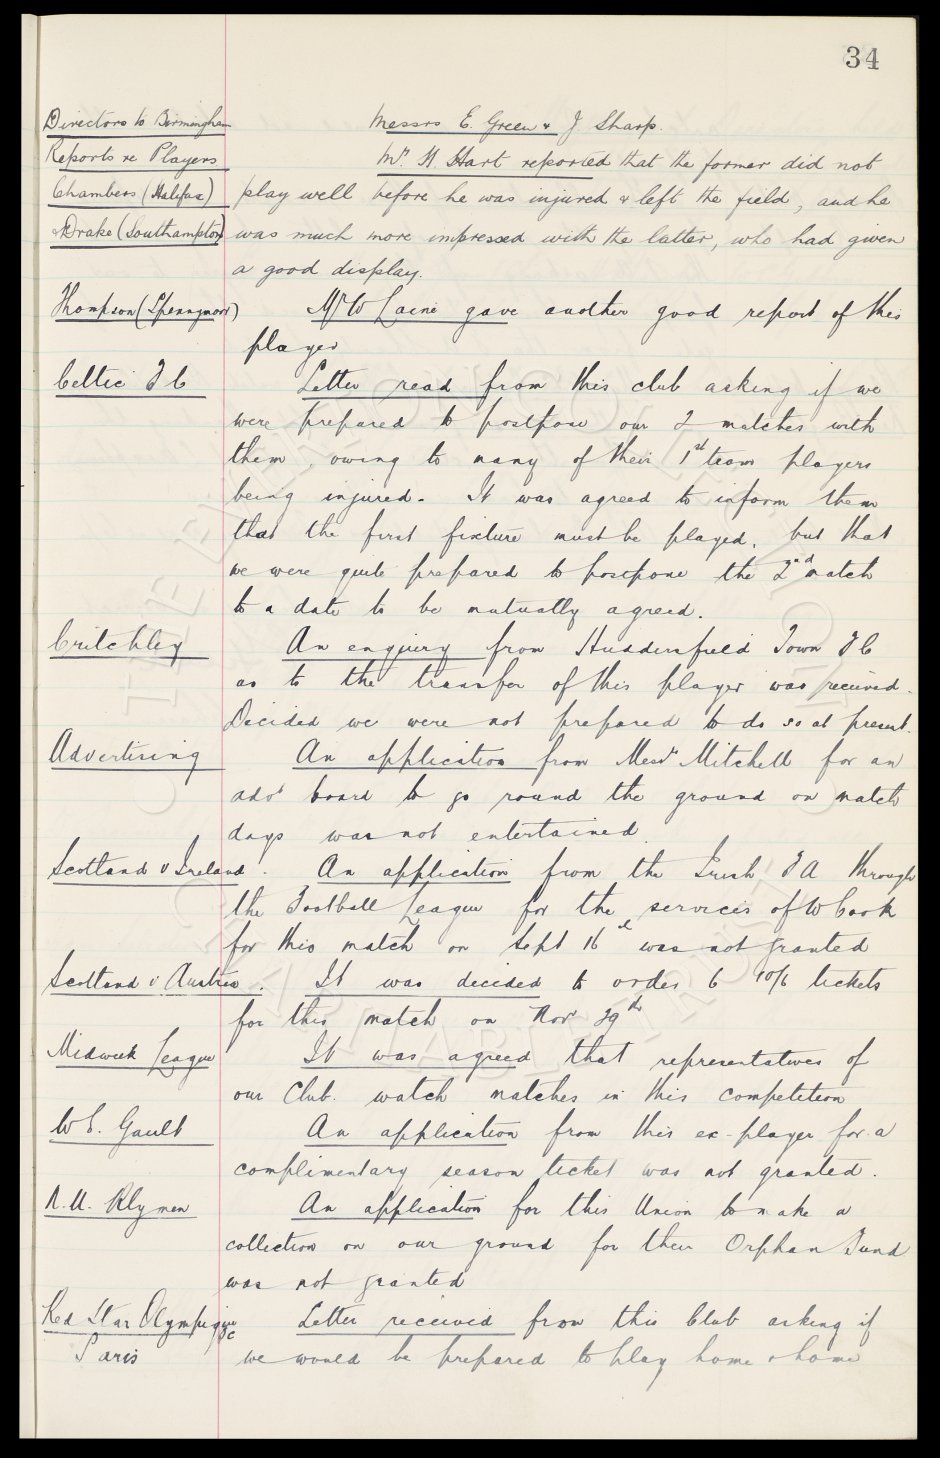 34
Directors to Birmingham Messrs E. Green & J Sharp.
Reports re Players Mr. H. Hart reported that the former did not
Chambers (Halifax) play well before he was injured & left the field, and he
& Drake (Southampton) was much more impressed with the latter, who had given
a good display.
Thompson (Spennymoor) Mr W Laine gave another good report of this
player
Celtic F C Letter read from this club asking if we
were prepared to postpone our 2 matches with
them, owing to many of their 1st team players
being injured. It was agreed to inform them
that the first fixture must be played, but that
we were quite prepared to postpone the 2nd match
to a date to be mutually agreed.
Critchley An enquiry from Huddersfield Town F C
as to the transfer of this player was received.
Decided we were not prepared to do so at present.
Advertising An application from Messrs Mitchell for an
advt board to go round the ground on match
days was not entertained.
Scotland v Ireland. An application from the Irish F A through
the Football League for the services of W Cook
for this match on Sept 16th was not granted
Scotland v Austria. It was decided to order 6 10/6 tickets
for this match on Nov 29th
Midweek League It was agreed that representatives of
our Club. watch matches in this competition
W E. Gault An application from this ex-player for a
complimentary season ticket was not granted.
N.U. Rlymen An application for this Union to make a
collection on our ground for their Orphan Fund
was not granted
Red Star Olympique FC Letter received from this Club asking if
Paris we would be prepared to play home & home